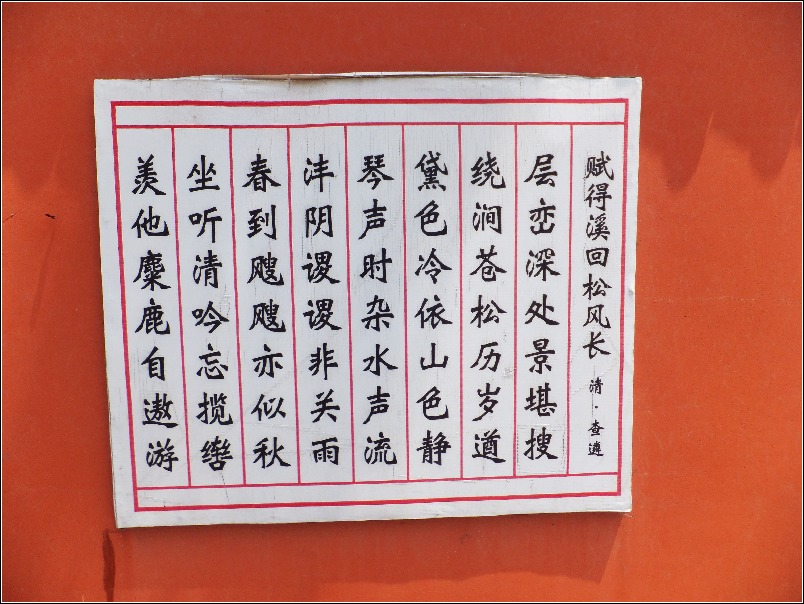 赋得溪回松风长 清·查遴
层峦深处景堪搜
绕涧苍松历岁遒
黛色冷依山色静
琴声时杂水声流
沣阴谡谡非关雨
春到飔飔亦似秋
坐听清吟忘揽辔
羡他麋鹿自遨游